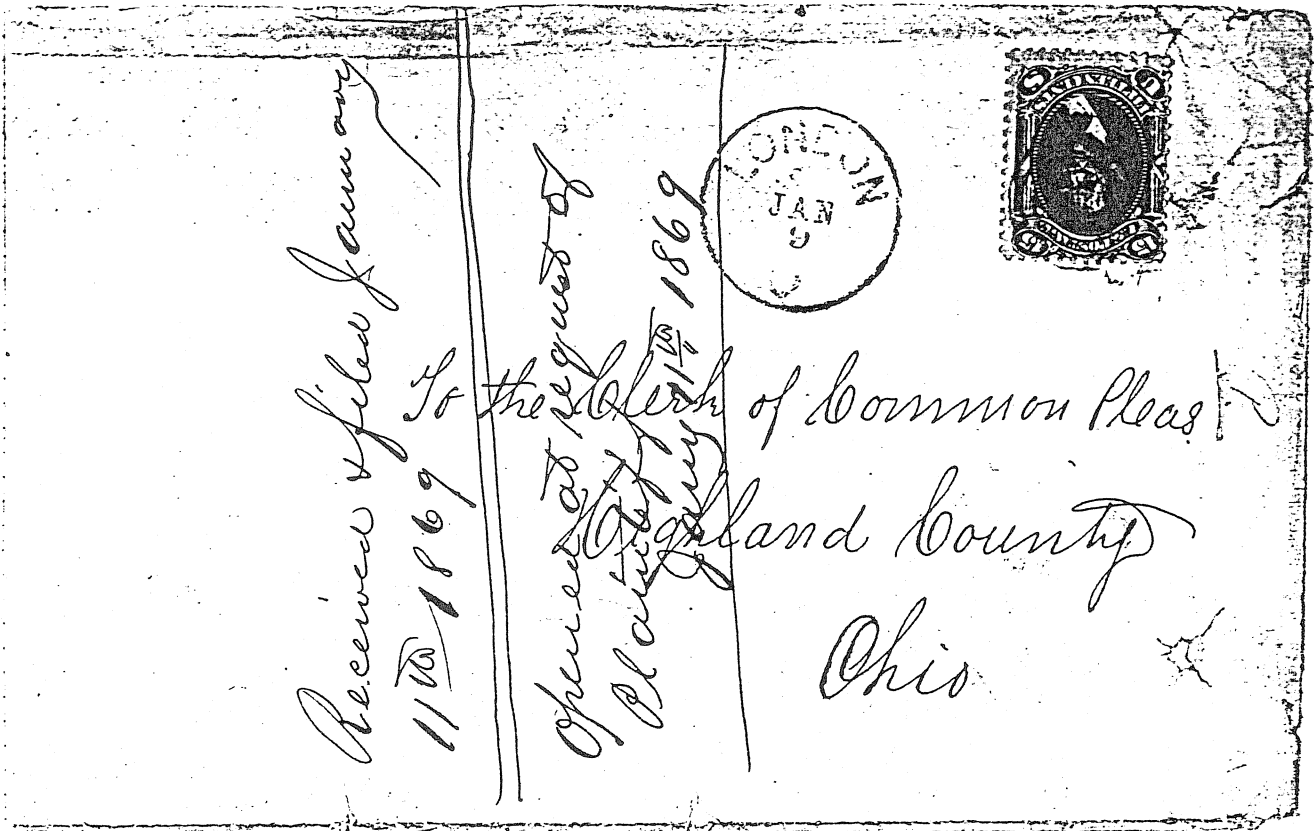 Received & filed January
11th 1869
Opened at request of
Plaintiff
January 11th 1869
LONDON
JAN
9
To the Clerk of Common Pleas
Highland County
Ohio